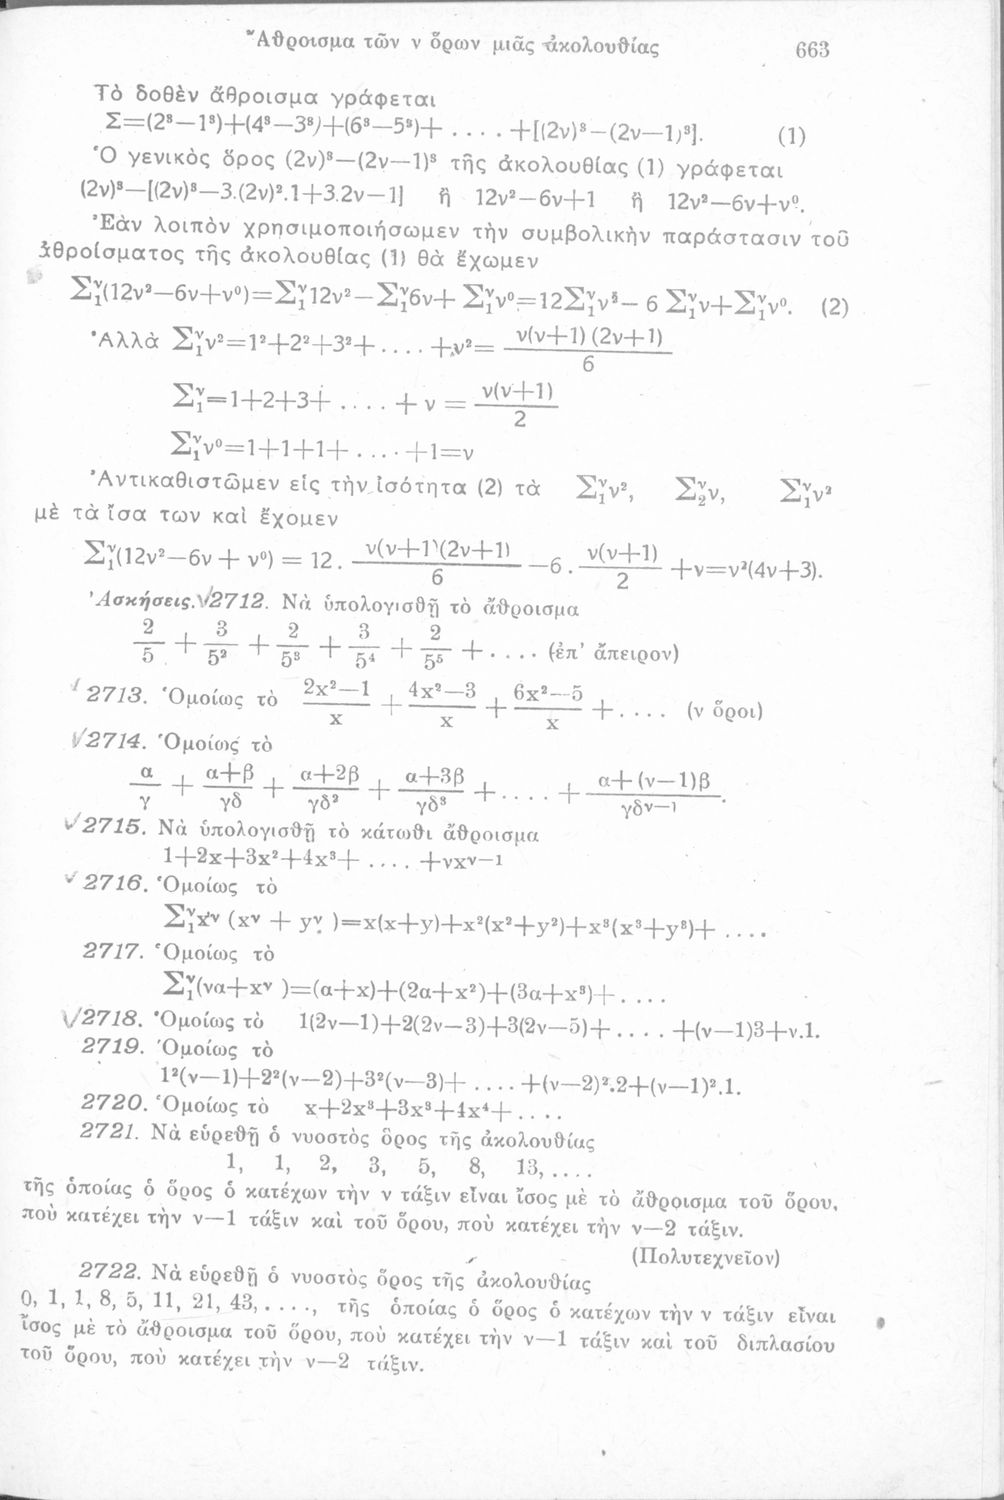 Ἄθροισμα τῶν ν ὅρων μιᾶς ἀκολουθίας 663
Τὸ δοθὲν ἄθροισμα γράφεται
Σ=(2³—1³)+(4³—3³)+(6³—5³)+ .... +[(2ν)³—(2ν—1)³]. (1)
Ὁ γενικὸς ὅρος (2ν)³—(2ν—1)³ τῆς ἀκολουθίας (1) γράφεται
(2ν)³—[(2ν)³—3.(2ν)².1+3.2ν—1] ἢ 12ν²—6ν+1 ἢ 12ν²—6ν+ν⁰.
Ἐὰν λοιπὸν χρησιμοποιήσωμεν τὴν συμβολικὴν παράστασιν τοῦ
ἀθροίσματος τῆς ἀκολουθίας (1) θὰ ἔχωμεν
Σ₁ᵛ(12ν²—6ν+ν⁰)=Σ₁ᵛ12ν²—Σ₁ᵛ6ν+ Σ₁ᵛν⁰=12Σ₁ᵛν²— 6 Σ₁ᵛν+Σ₁ᵛν⁰. (2)
Ἀλλὰ Σ₁ᵛν²=1²+2²+3²+ .... +ν²= ν(ν+1) (2ν+1) / 6
Σ₁ᵛ=1+2+3+ .... + ν = ν(ν+1) / 2
Σ₁ᵛν⁰=1+1+1+ .... +1=ν
Ἀντικαθιστῶμεν εἰς τὴν ἰσότητα (2) τὰ Σ₁ᵛν², Σ₂ᵛν, Σ₁ᵛν²
μὲ τὰ ἴσα των καὶ ἔχομεν
Σ₁ᵛ(12ν²—6ν + ν⁰) = 12. ν(ν+1)(2ν+1) / 6 —6. ν(ν+1) / 2 +ν=ν²(4ν+3).
Ἀσκήσεις. 2712. Νὰ ὑπολογισθῇ τὸ ἄθροισμα
2/5 + 3/5² + 2/5³ + 3/5⁴ + 2/5⁵ + .... (ἐπ' ἄπειρον)
2713. Ὁμοίως τὸ 2x²—1 / x + 4x²—3 / x + 6x²—5 / x +.... (ν ὅροι)
2714. Ὁμοίως τὸ
α/γ + α+β / γδ + α+2β / γδ² + α+3β / γδ³ + .... + α+(ν—1)β / γδᵛ⁻¹ .
2715. Νὰ ὑπολογισθῇ τὸ κάτωθι ἄθροισμα
1+2x+3x²+4x³+ .... +νxᵛ⁻¹
2716. Ὁμοίως τὸ
Σ₁ᵛxᵛ (xᵛ + yᵛ )=x(x+y)+x²(x²+y²)+x³(x³+y³)+ ....
2717. Ὁμοίως τὸ
Σ₁ᵛ(να+xᵛ )=(α+x)+(2α+x²)+(3α+x³)+....
2718. Ὁμοίως τὸ 1(2ν—1)+2(2ν—3)+3(2ν—5)+.... +(ν—1)3+ν.1.
2719. Ὁμοίως τὸ
1²(ν—1)+2²(ν—2)+3²(ν—3)+ .... +(ν—2)².2+(ν—1)².1.
2720. Ὁμοίως τὸ x+2x²+3x³+4x⁴+....
2721. Νὰ εὑρεθῇ ὁ νυοστὸς ὅρος τῆς ἀκολουθίας
1, 1, 2, 3, 5, 8, 13,....
τῆς ὁποίας ὁ ὅρος ὁ κατέχων τὴν ν τάξιν εἶναι ἴσος μὲ τὸ ἄθροισμα τοῦ ὅρου,
ποὺ κατέχει τὴν ν—1 τάξιν καὶ τοῦ ὅρου, ποὺ κατέχει τὴν ν—2 τάξιν.
(Πολυτεχνεῖον)
2722. Νὰ εὑρεθῇ ὁ νυοστὸς ὅρος τῆς ἀκολουθίας
0, 1, 1, 8, 5, 11, 21, 43,....., τῆς ὁποίας ὁ ὅρος ὁ κατέχων τὴν ν τάξιν εἶναι
ἴσος μὲ τὸ ἄθροισμα τοῦ ὅρου, ποὺ κατέχει τὴν ν—1 τάξιν καὶ τοῦ διπλασίου
τοῦ ὅρου, ποὺ κατέχει τὴν ν—2 τάξιν.